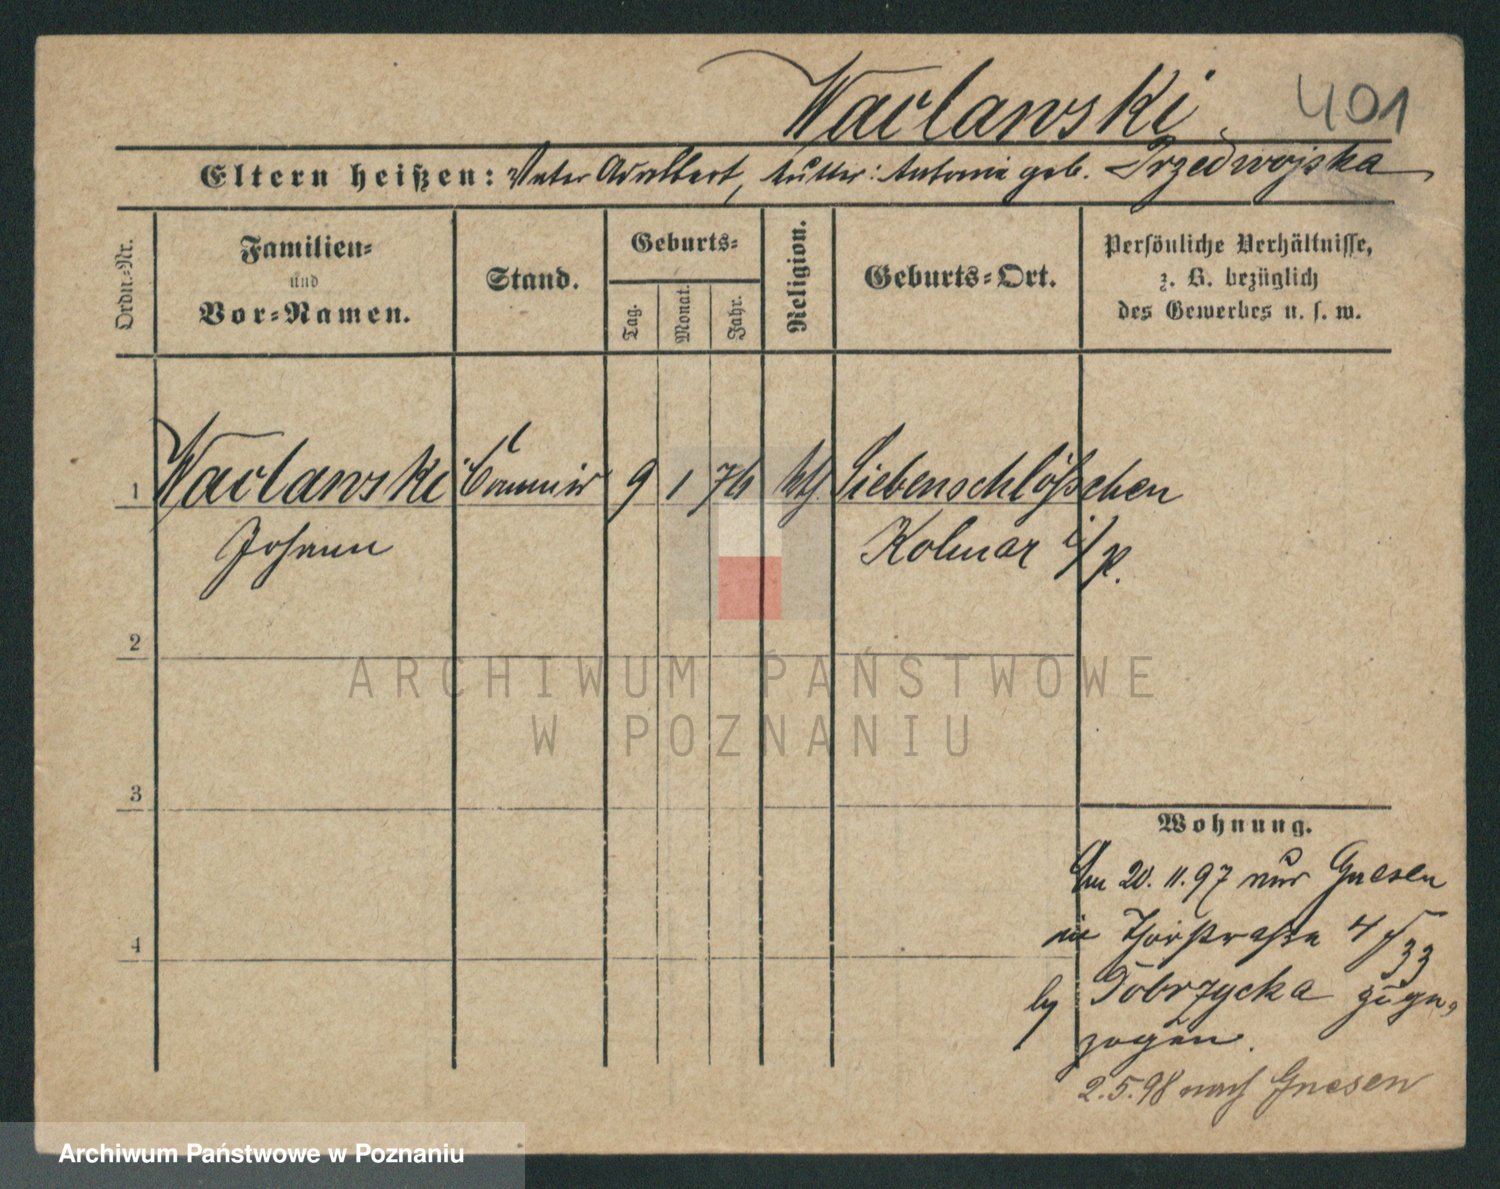 Waclawski
401
Eltern heißen: Vater Adalbert, Mutter: Antonie geb. Przedwojska
Ordn.-Nr.
Familien-
und
Vor-Namen.
Stand.
Geburts-
Tag.
Monat.
Jahr.
Religion.
Geburts-Ort.
Persönliche Verhältnisse,
z. B. bezüglich
des Gewerbes u. s. w.
1 Waclawski Commis 9 1 76 kth. Liebenschlößchen
Johann Kolmar i/P.
2
3
4
Wohnung.
Am 20.11.97 aus Gnesen
in Thorstraße 4
33
by Dobrzycka zuge-
zogen.
2.5.98 nach Gnesen
ARCHIWUM PAŃSTWOWE
W POZNANIU
Archiwum Państwowe w Poznaniu